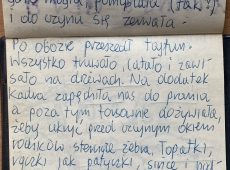 mogła, pomyślała (tak?)
i do czynu się zerwała.
Po obozie przeszedł tajfun.
Wszystko fruwało (latało) i zawi-
sało na drzewach. Na dodatek
kadra zapędziła nas do prania
a poza tym forsownie dożywiała,
żeby ukryć przed czujnym okiem
rodziców sterczące żebra. Łopatki,
rączki jak patyczki, sińce i